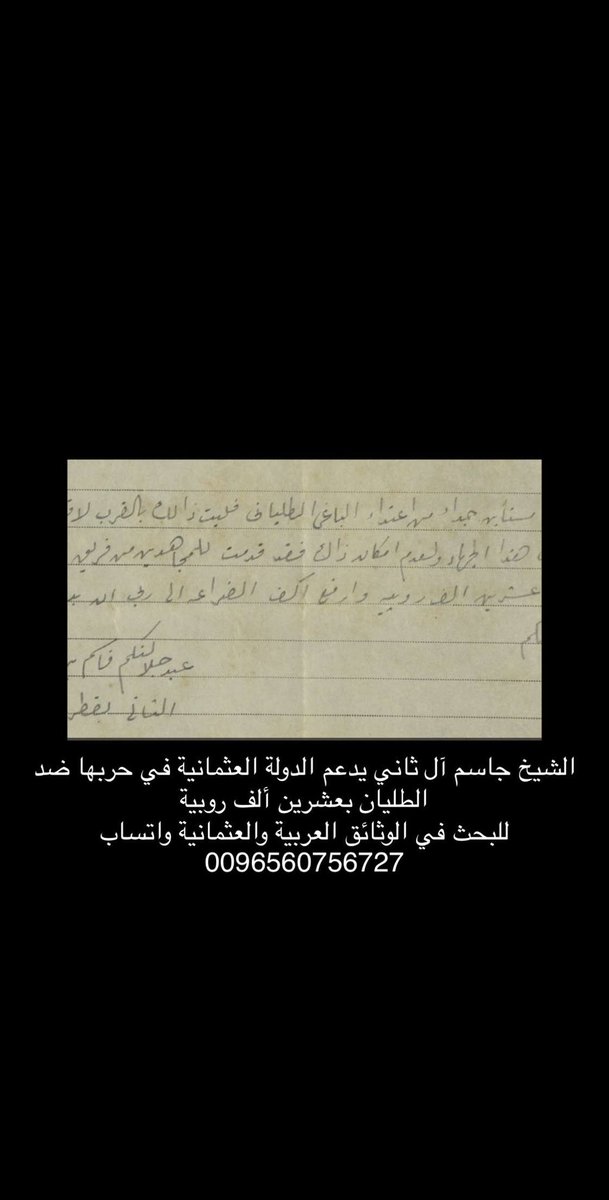 مستأ بن جداء من اعتداء الباغي الطلياني فليت ذالك بالقرب
هذا الجهاد ولعدم امكان ذالك فقد قدمت للمجاهدين من فريق
عشرين الف روبيه وارفع اكف الضراعه الى ربي ان
عبد جلالتكم قاسم
الثاني بقطر
الشيخ جاسم آل ثاني يدعم الدولة العثمانية في حربها ضد
الطليان بعشرين ألف روبية
للبحث في الوثائق العربية والعثمانية واتساب
0096560756727